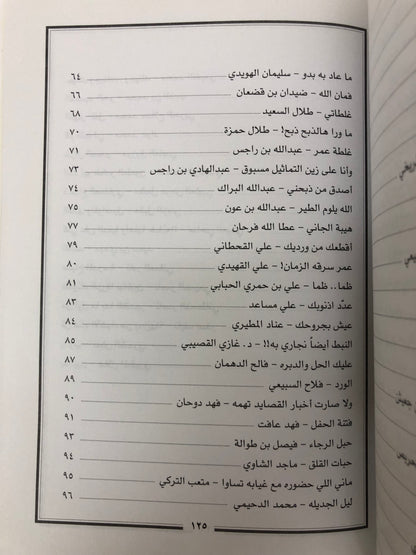 ما عاد به بدو – سليمان الهويدي ٦٤
فمان الله – ضيدان بن قضعان ٦٦
غلطاتي – طلال السعيد ٦٨
ما ورا هالذبح ذبح! – طلال حمزة ٧٠
غلطة عمر – عبدالله بن راجس ٧١
وانا على زين التماثيل مسبوق – عبدالهادي بن راجس ٧٣
أصدق من ذبحني – عبدالله البراك ٧٤
الله يلوم الطير – عبدالله بن عون ٧٥
هيبة الجاني – عطا الله فرحان ٧٧
أقطعك من ورديك – علي القحطاني ٧٩
عمر سرقه الزمان! – علي القهيدي ٨٠
ظما.. ظما – علي بن حمري الحبابي ٨١
عدّد اذنوبك – علي مساعد ٨٣
عيش بجروحك – عناد المطيري ٨٤
النبط أيضاً نجاري به!! – د. غازي القصيبي ٨٥
عليك الحل والدبره – فالح الدهمان ٨٧
الورد – فلاح السبيعي ٨٩
ولا صارت أخبار القصايد تهمه – فهد دوحان ٩٠
فتنة الحفل – فهد عافت ٩١
حبل الرجاء – فيصل بن طوالة ٩٣
حبات القلق – ماجد الشاوي ٩٤
ماني اللي حضوره مع غيابه تساوا – متعب التركي ٩٥
ليل الجديله – محمد الدحيمي ٩٦
١٢٥